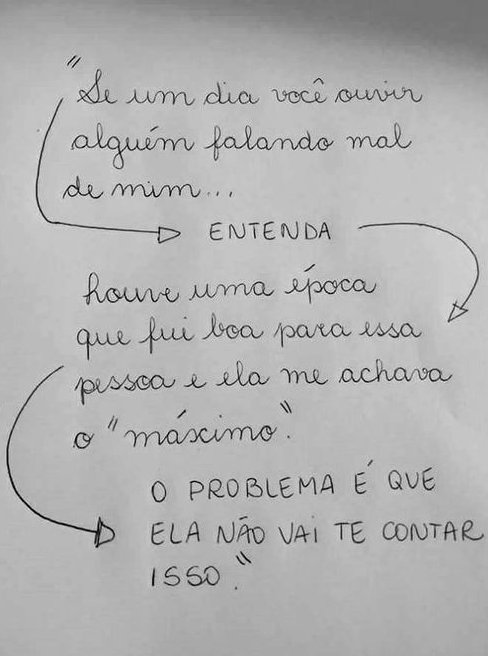 "Se um dia você ouvir
alguém falando mal
de mim...
ENTENDA
houve uma época
que fui boa para essa
pessoa e ela me achava
o "máximo".
O PROBLEMA É QUE
ELA NÃO VAI TE CONTAR
ISSO."